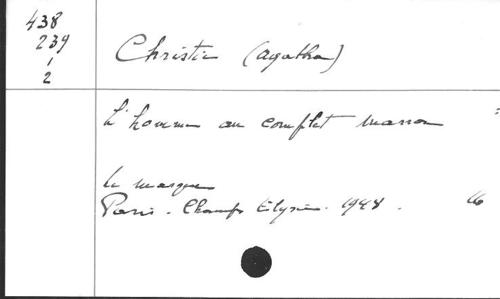 438
239
1
2
Christie (agatha)
L'homme au complet marron
le masque
Paris. Champs Elysées. 1948.